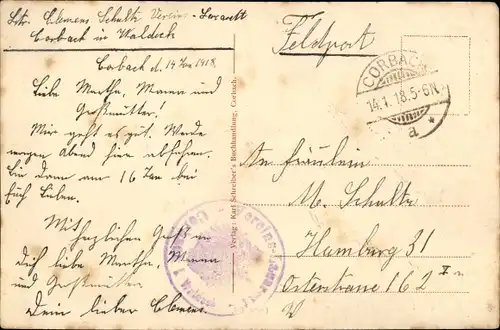 Lstr. Clemens Schultz Vereins-Lazarett
Corbach in Waldeck
Corbach d. 14 Jan 1918.
Liebe Martha, Mama und
Großmutter!
Mir geht es gut. Werde
morgen Abend hier abfahren.
Bin dann am 16 Jan bei
Euch Lieben.
Mit
herzlichen Gruß an
dich liebe Martha, Mama
und Großmutter
Dein lieber Clemens.
Verlag: Karl Schreiber's Buchhandlung, Corbach.
Feldpost
CORBACH
14.1.18.5-6N.
a
An Fräulein
M. Schultz
Hamburg 31
Osterstrasse 162